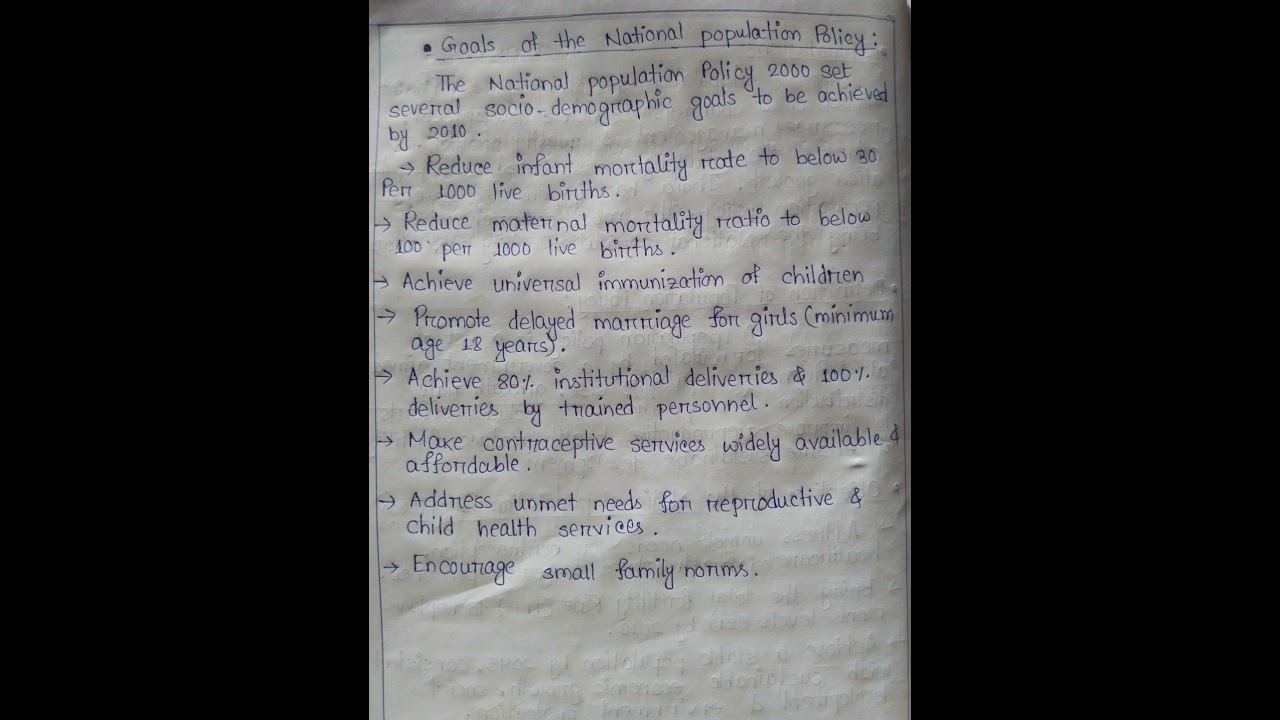 • Goals of the National population Policy:
The National population Policy 2000 set
several socio-demographic goals to be achieved
by 2010.
→ Reduce infant mortality rate to below 30
Per 1000 live births.
→ Reduce maternal mortality ratio to below
100 per 1000 live births.
→ Achieve universal immunization of children
→ Promote delayed marriage for girls (minimum
age 18 years).
→ Achieve 80% institutional deliveries & 100%
deliveries by trained personnel.
→ Make contraceptive services widely available &
affordable.
→ Address unmet needs for reproductive &
child health services.
→ Encourage small family norms.